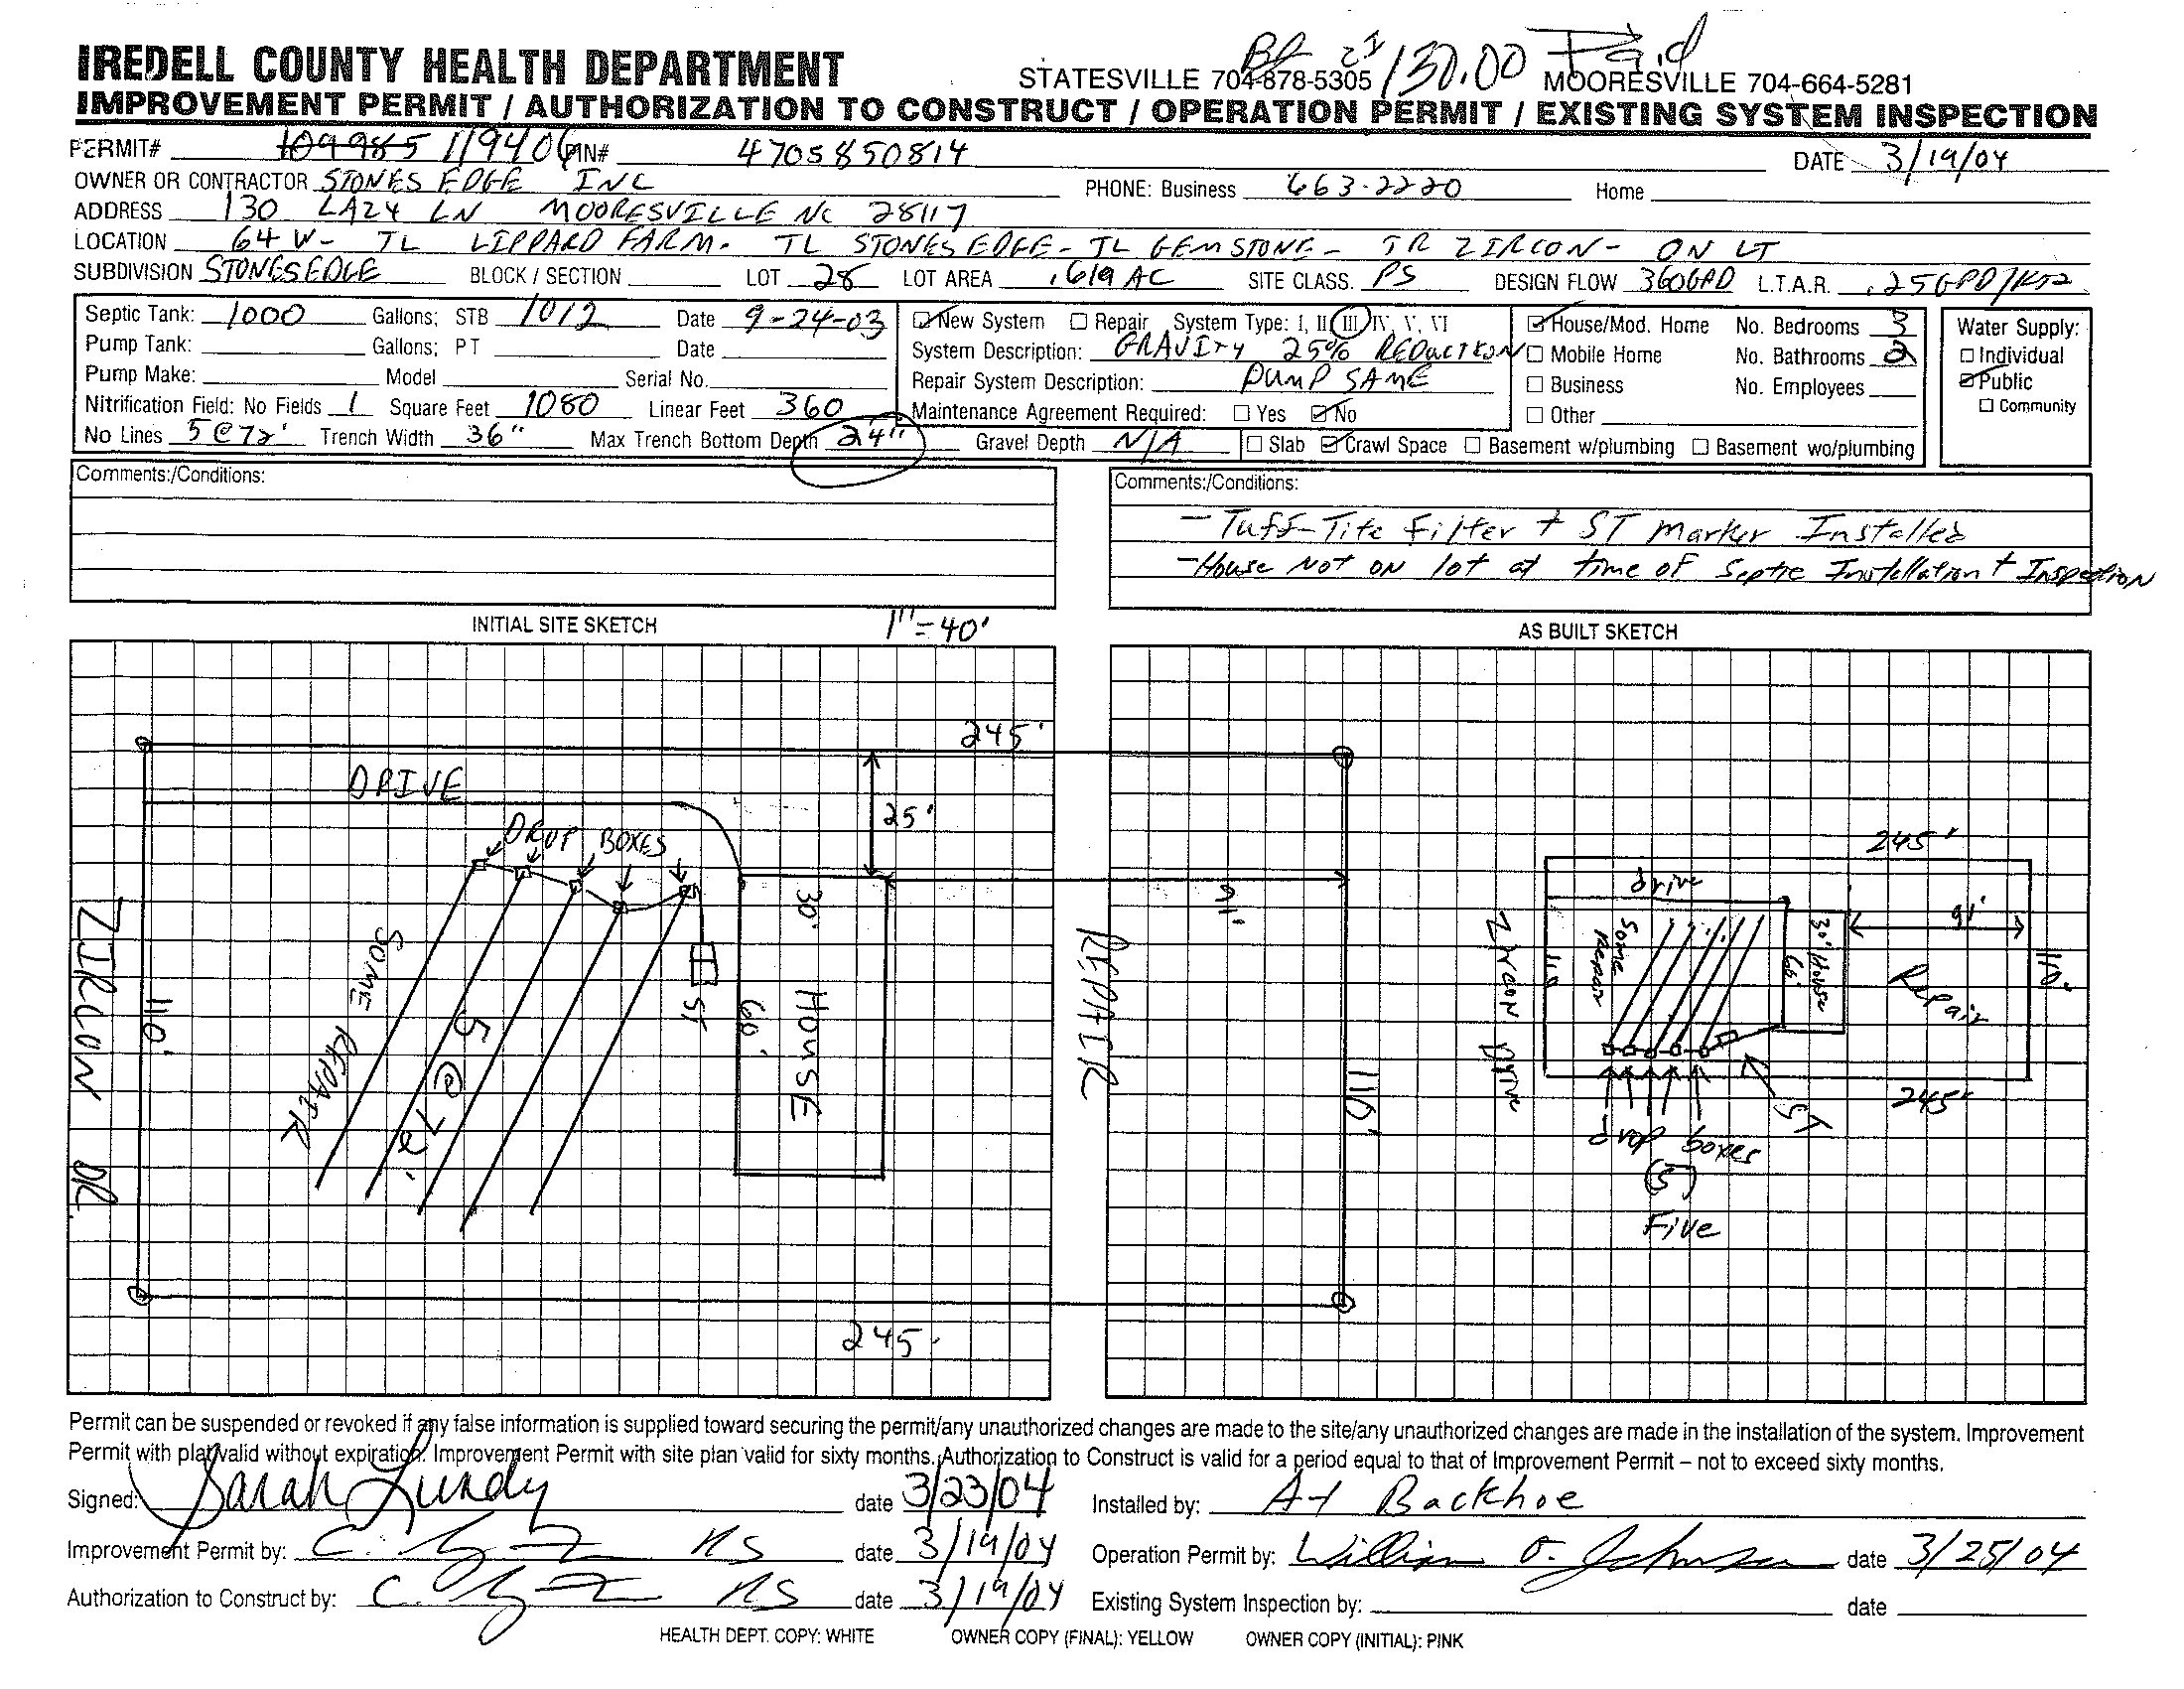 Paid
IREDELL COUNTY HEALTH DEPARTMENT STATESVILLE 704-878-5305 130.00 MOORESVILLE 704-664-5281
IMPROVEMENT PERMIT / AUTHORIZATION TO CONSTRUCT / OPERATION PERMIT / EXISTING SYSTEM INSPECTION
PERMIT# 109985 119406 PIN# 4705850814 DATE 3/19/04
OWNER OR CONTRACTOR STONES EDGE INC PHONE: Business 663-2220 Home
ADDRESS 130 LAZY LN MOORESVILLE NC 28117
LOCATION 64 W- TL LIPPARD FARM- TL STONES EDGE- TL GEMSTONE- TR ZIRCON- ON LT
SUBDIVISION STONES EDGE BLOCK / SECTION LOT 28 LOT AREA .619 AC SITE CLASS. PS DESIGN FLOW 360GPD L.T.A.R. .25GPD/FT2
Septic Tank: 1000 Gallons; STB 1012 Date 9-24-03
Pump Tank: Gallons; PT Date
Pump Make: Model Serial No.
Nitrification Field: No Fields 1 Square Feet 1080 Linear Feet 360
No Lines 5@72' Trench Width 36" Max Trench Bottom Depth 24" Gravel Depth N/A
New System Repair System Type: I, II, III, IV, V, VI
System Description: GRAVITY 25% REDUCTION
Repair System Description: PUMP SAME
Maintenance Agreement Required: Yes No
Slab Crawl Space Basement w/plumbing Basement wo/plumbing
House/Mod. Home No. Bedrooms 3
Mobile Home No. Bathrooms 2
Business No. Employees
Other
Water Supply:
Individual
Public
Community
Comments:/Conditions:
Comments:/Conditions:
- Tuff-Tite Filter + ST Marker Installed
- House Not on lot at time of Septic Installation + Inspection
INITIAL SITE SKETCH 1"=40'
245'
DRIVE
25'
DROP BOXES
30'
91'
SOME REPAIR
5@72'
ST
66'
HOUSE
REPAIR
ZIRCON DR.
110'
110'
245'
AS BUILT SKETCH
245'
drive
91'
Some repair
30' House
66'
Repair
110'
110'
Zircon Drive
ST
245'
drop boxes
(5)
Five
Permit can be suspended or revoked if any false information is supplied toward securing the permit/any unauthorized changes are made to the site/any unauthorized changes are made in the installation of the system. Improvement
Permit with plat valid without expiration. Improvement Permit with site plan valid for sixty months. Authorization to Construct is valid for a period equal to that of Improvement Permit – not to exceed sixty months.
Signed: Sarah Lundy date 3/23/04 Installed by: A-1 Backhoe
Improvement Permit by: C. RS date 3/19/04 Operation Permit by: William O. Johnson date 3/25/04
Authorization to Construct by: C. RS date 3/19/04 Existing System Inspection by: date
HEALTH DEPT. COPY: WHITE OWNER COPY (FINAL): YELLOW OWNER COPY (INITIAL): PINK